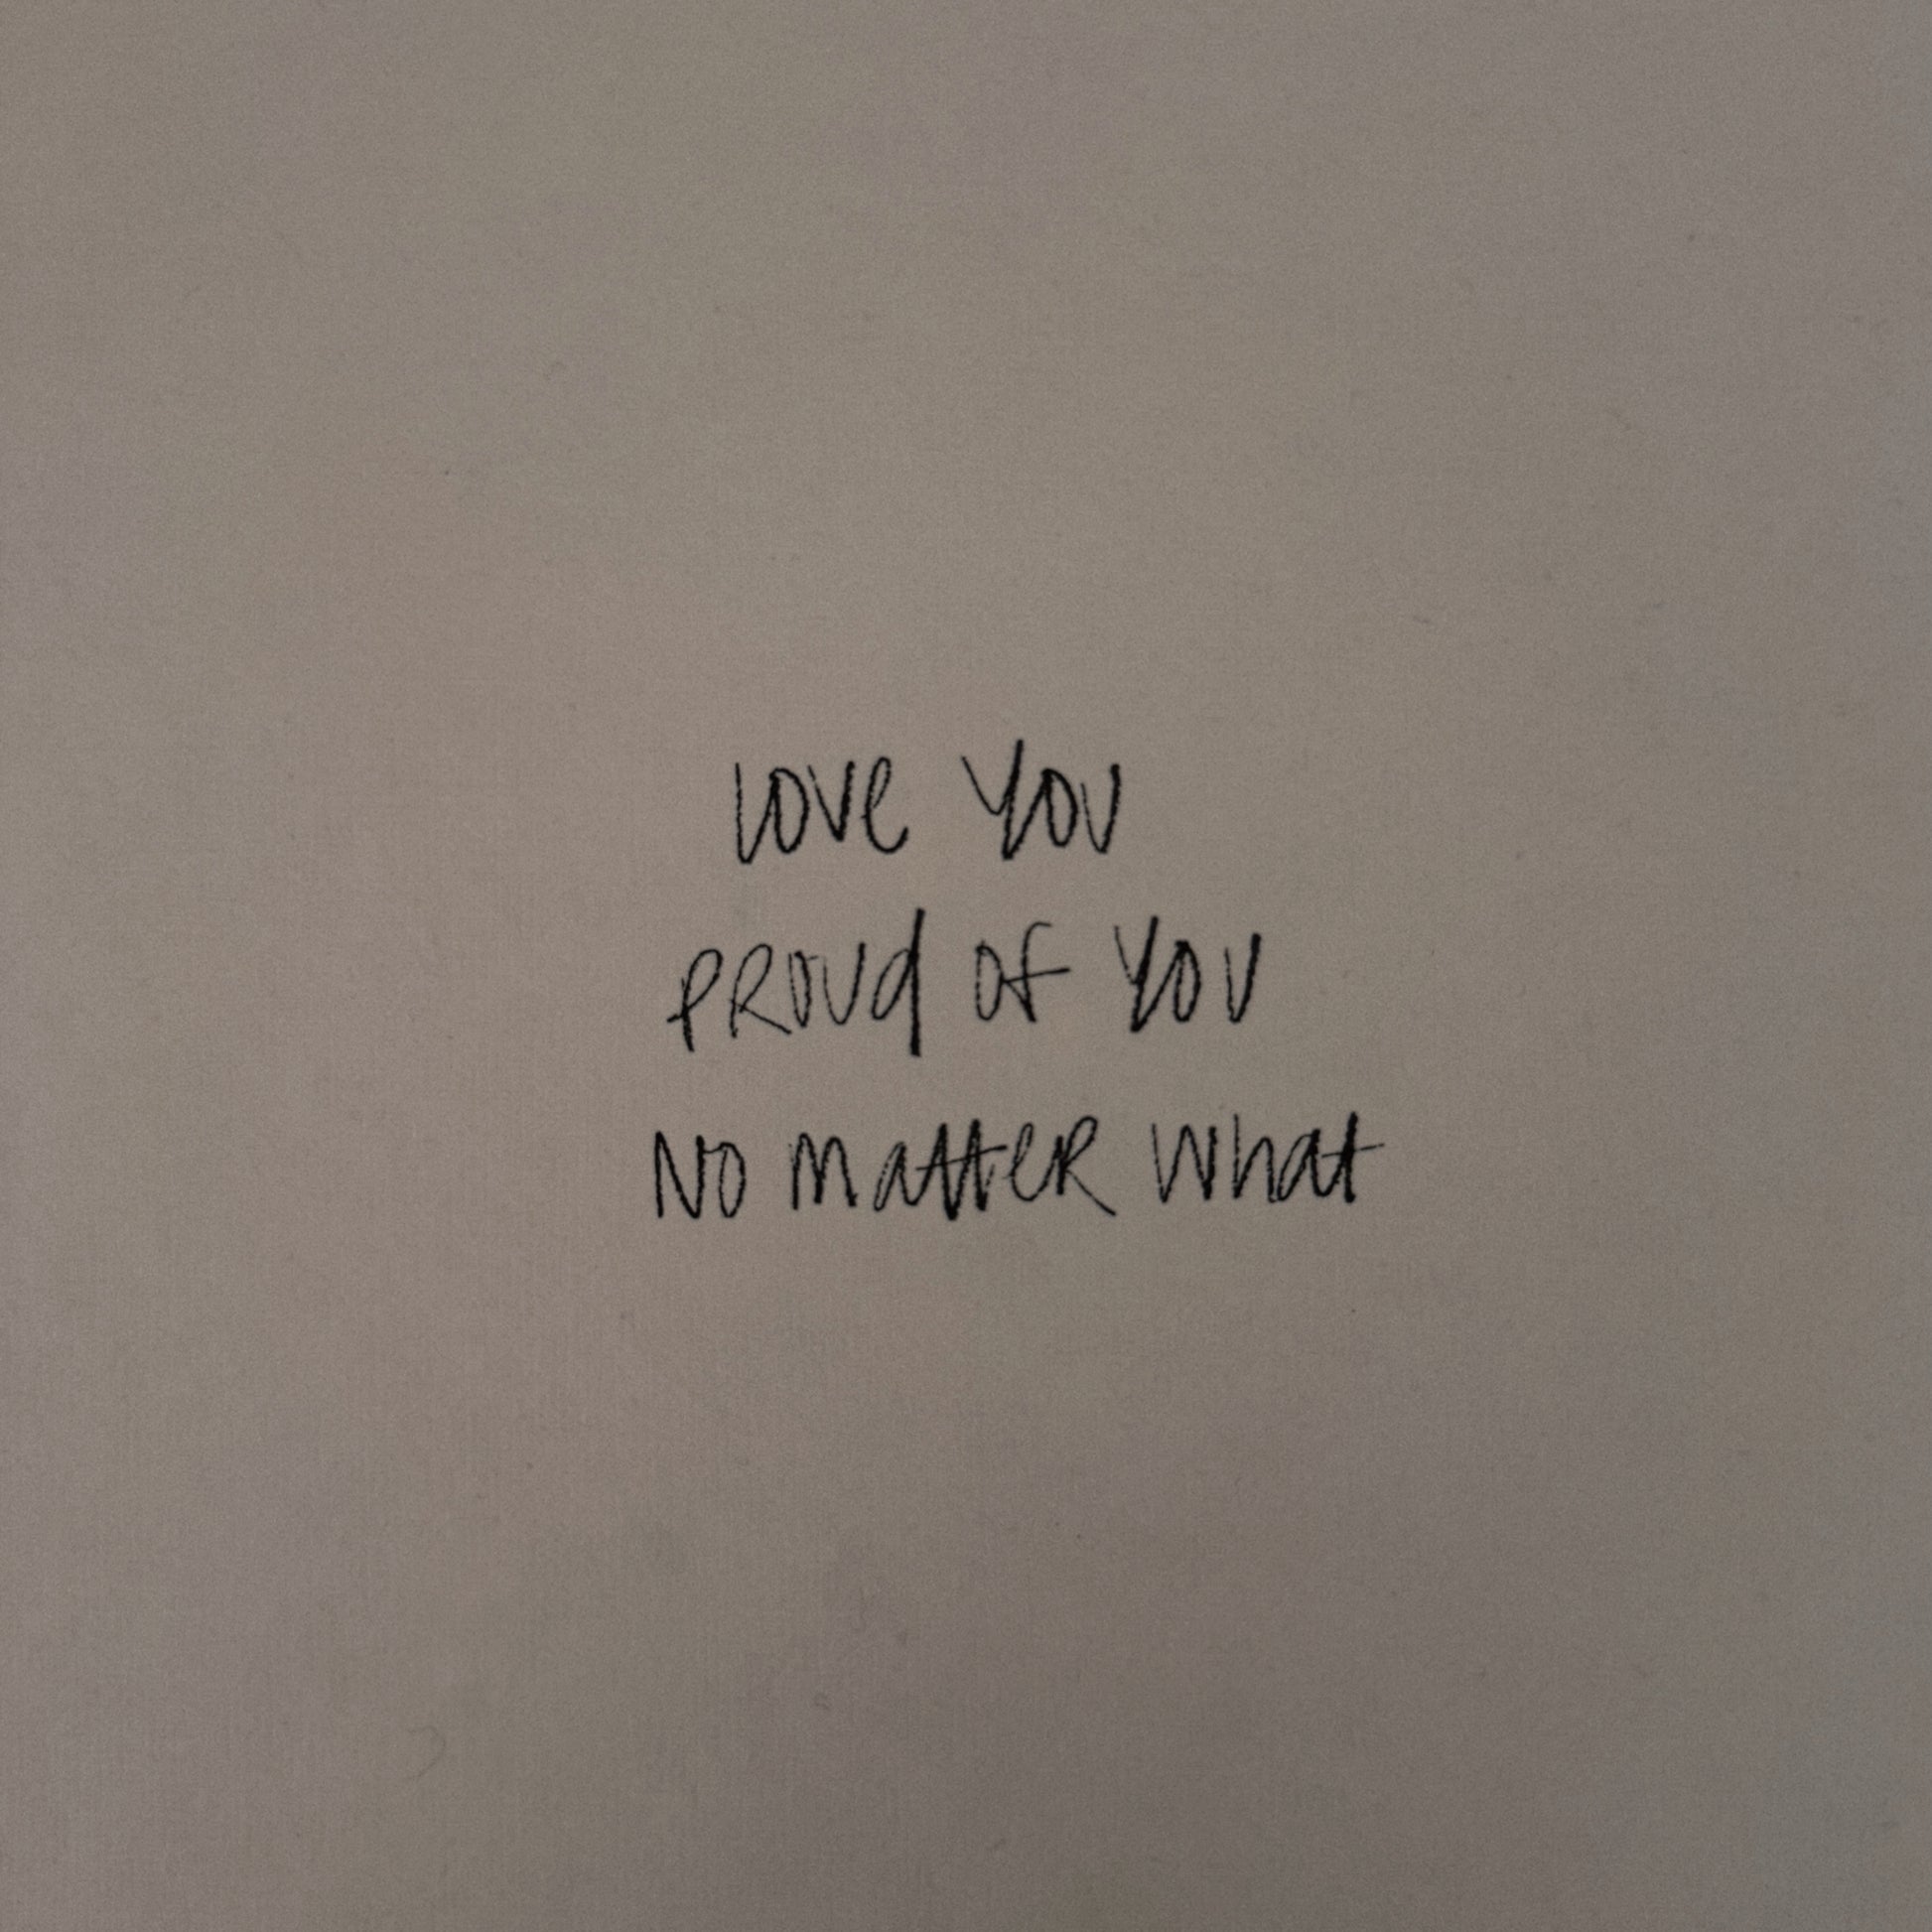 LOVE YOU
PROUD OF YOU
NO MATTER WHAT